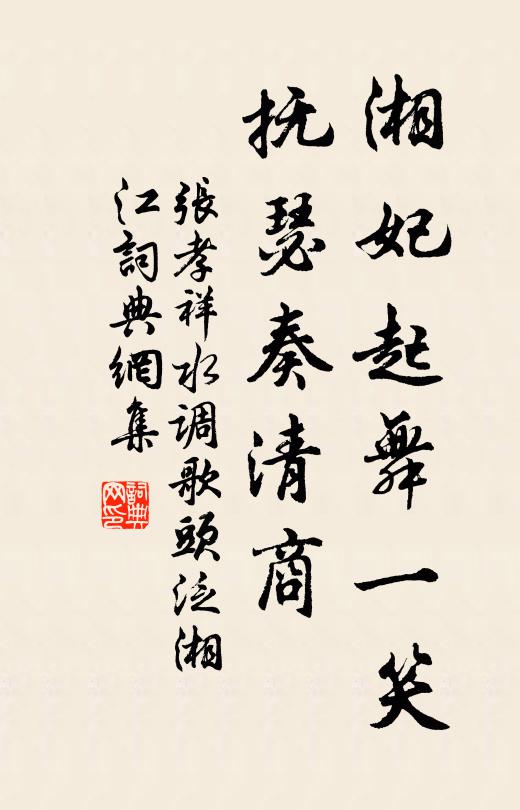 湘妃起舞一笑
抚瑟奏清商
張孝祥水调歌頭泛湘
江詞典網集
詞典
网印